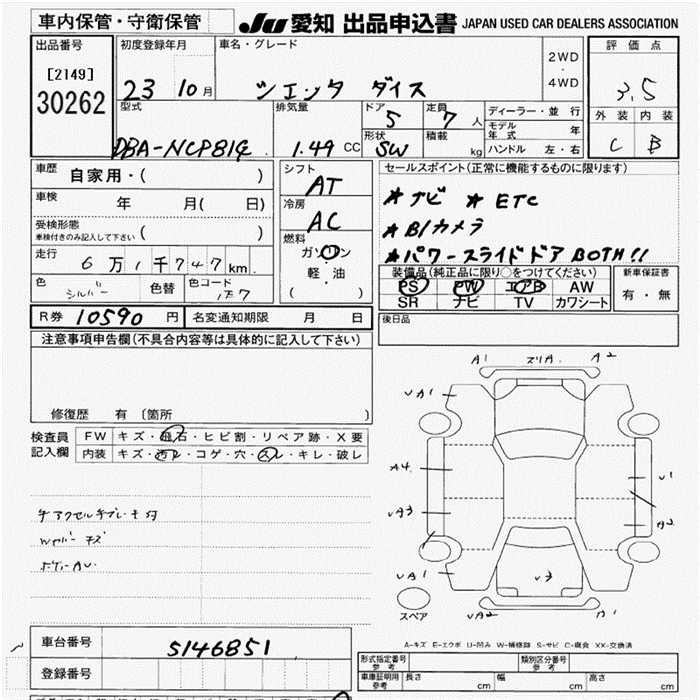 車内保管・守衛保管 JU 愛知 出品申込書 JAPAN USED CAR DEALERS ASSOCIATION
出品番号 初度登録年月 車名・グレード 2WD ・ 4WD 評価点
[2149] 30262 23 10月 シエンタ ダイス 3.5
型式 排気量 ドア 5 定員 7人 ディーラー・並行 外装 内装
モデル年式 年
DBA-NCP81G 1.49 CC 形状 SW 積載 kg ハンドル 左・右 C B
車歴 自家用・( ) シフト AT セールスポイント(正常に機能するものに限ります)
車検 年 月( 日) 冷房 AC ★ナビ ★ETC
受検形態 車検付きのみ記入して下さい ( ) 燃料 ★B/カメラ
走行 6万1千747km ガソリン ★パワースライドドア BOTH!!
色 シルバー 色替 色コード 1F7 軽・油 ( )
装備品(純正品に限り○をつけてください) 新車保証書
PS PW エアB AW 有・無
SR ナビ TV カワシート
R券 10590円 名変通知期限 月 日 後日品
注意事項申告欄(不具合内容等は具体的に記入して下さい)
修復歴 有 〔箇所 〕
検査員記入欄 FW キズ・飛石・ヒビ割・リペア跡・X要
内装 キズ・汚レ・コゲ・穴・スレ・キレ・破レ
A1 スリA. A2
UA1
A4 U1
UA3 A2
UA1 U3
UA2 A1
スペア
A-キズ E-エクボ U-凹み W-補修跡 S-サビ C-腐食 XX-交換済
車台番号 5146851
登録番号
形式指定番号 参考 類別区分番号 参考
車庫証明用 参考 長さ cm 幅 cm 高さ cm